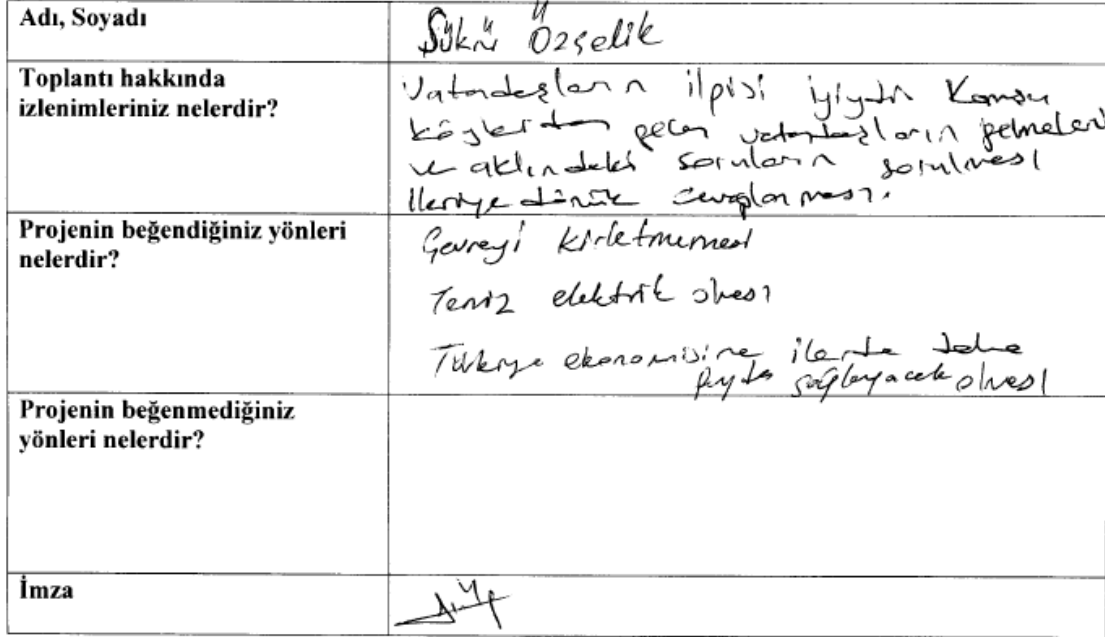 Adı, Soyadı
Şükrü Özçelik
Toplantı hakkında
izlenimleriniz nelerdir?
Vatandaşların ilgisi iyiydi Komşu
köylerden gelen vatandaşların gelmeleri
ve aklındaki soruların sorulması
İleriye dönük cevaplanması.
Projenin beğendiğiniz yönleri
nelerdir?
Çevreyi kirletmemesi
Temiz elektrik olması
Türkiye ekonomisine ilerde daha
fayda sağlayacak olması
Projenin beğenmediğiniz
yönleri nelerdir?
İmza